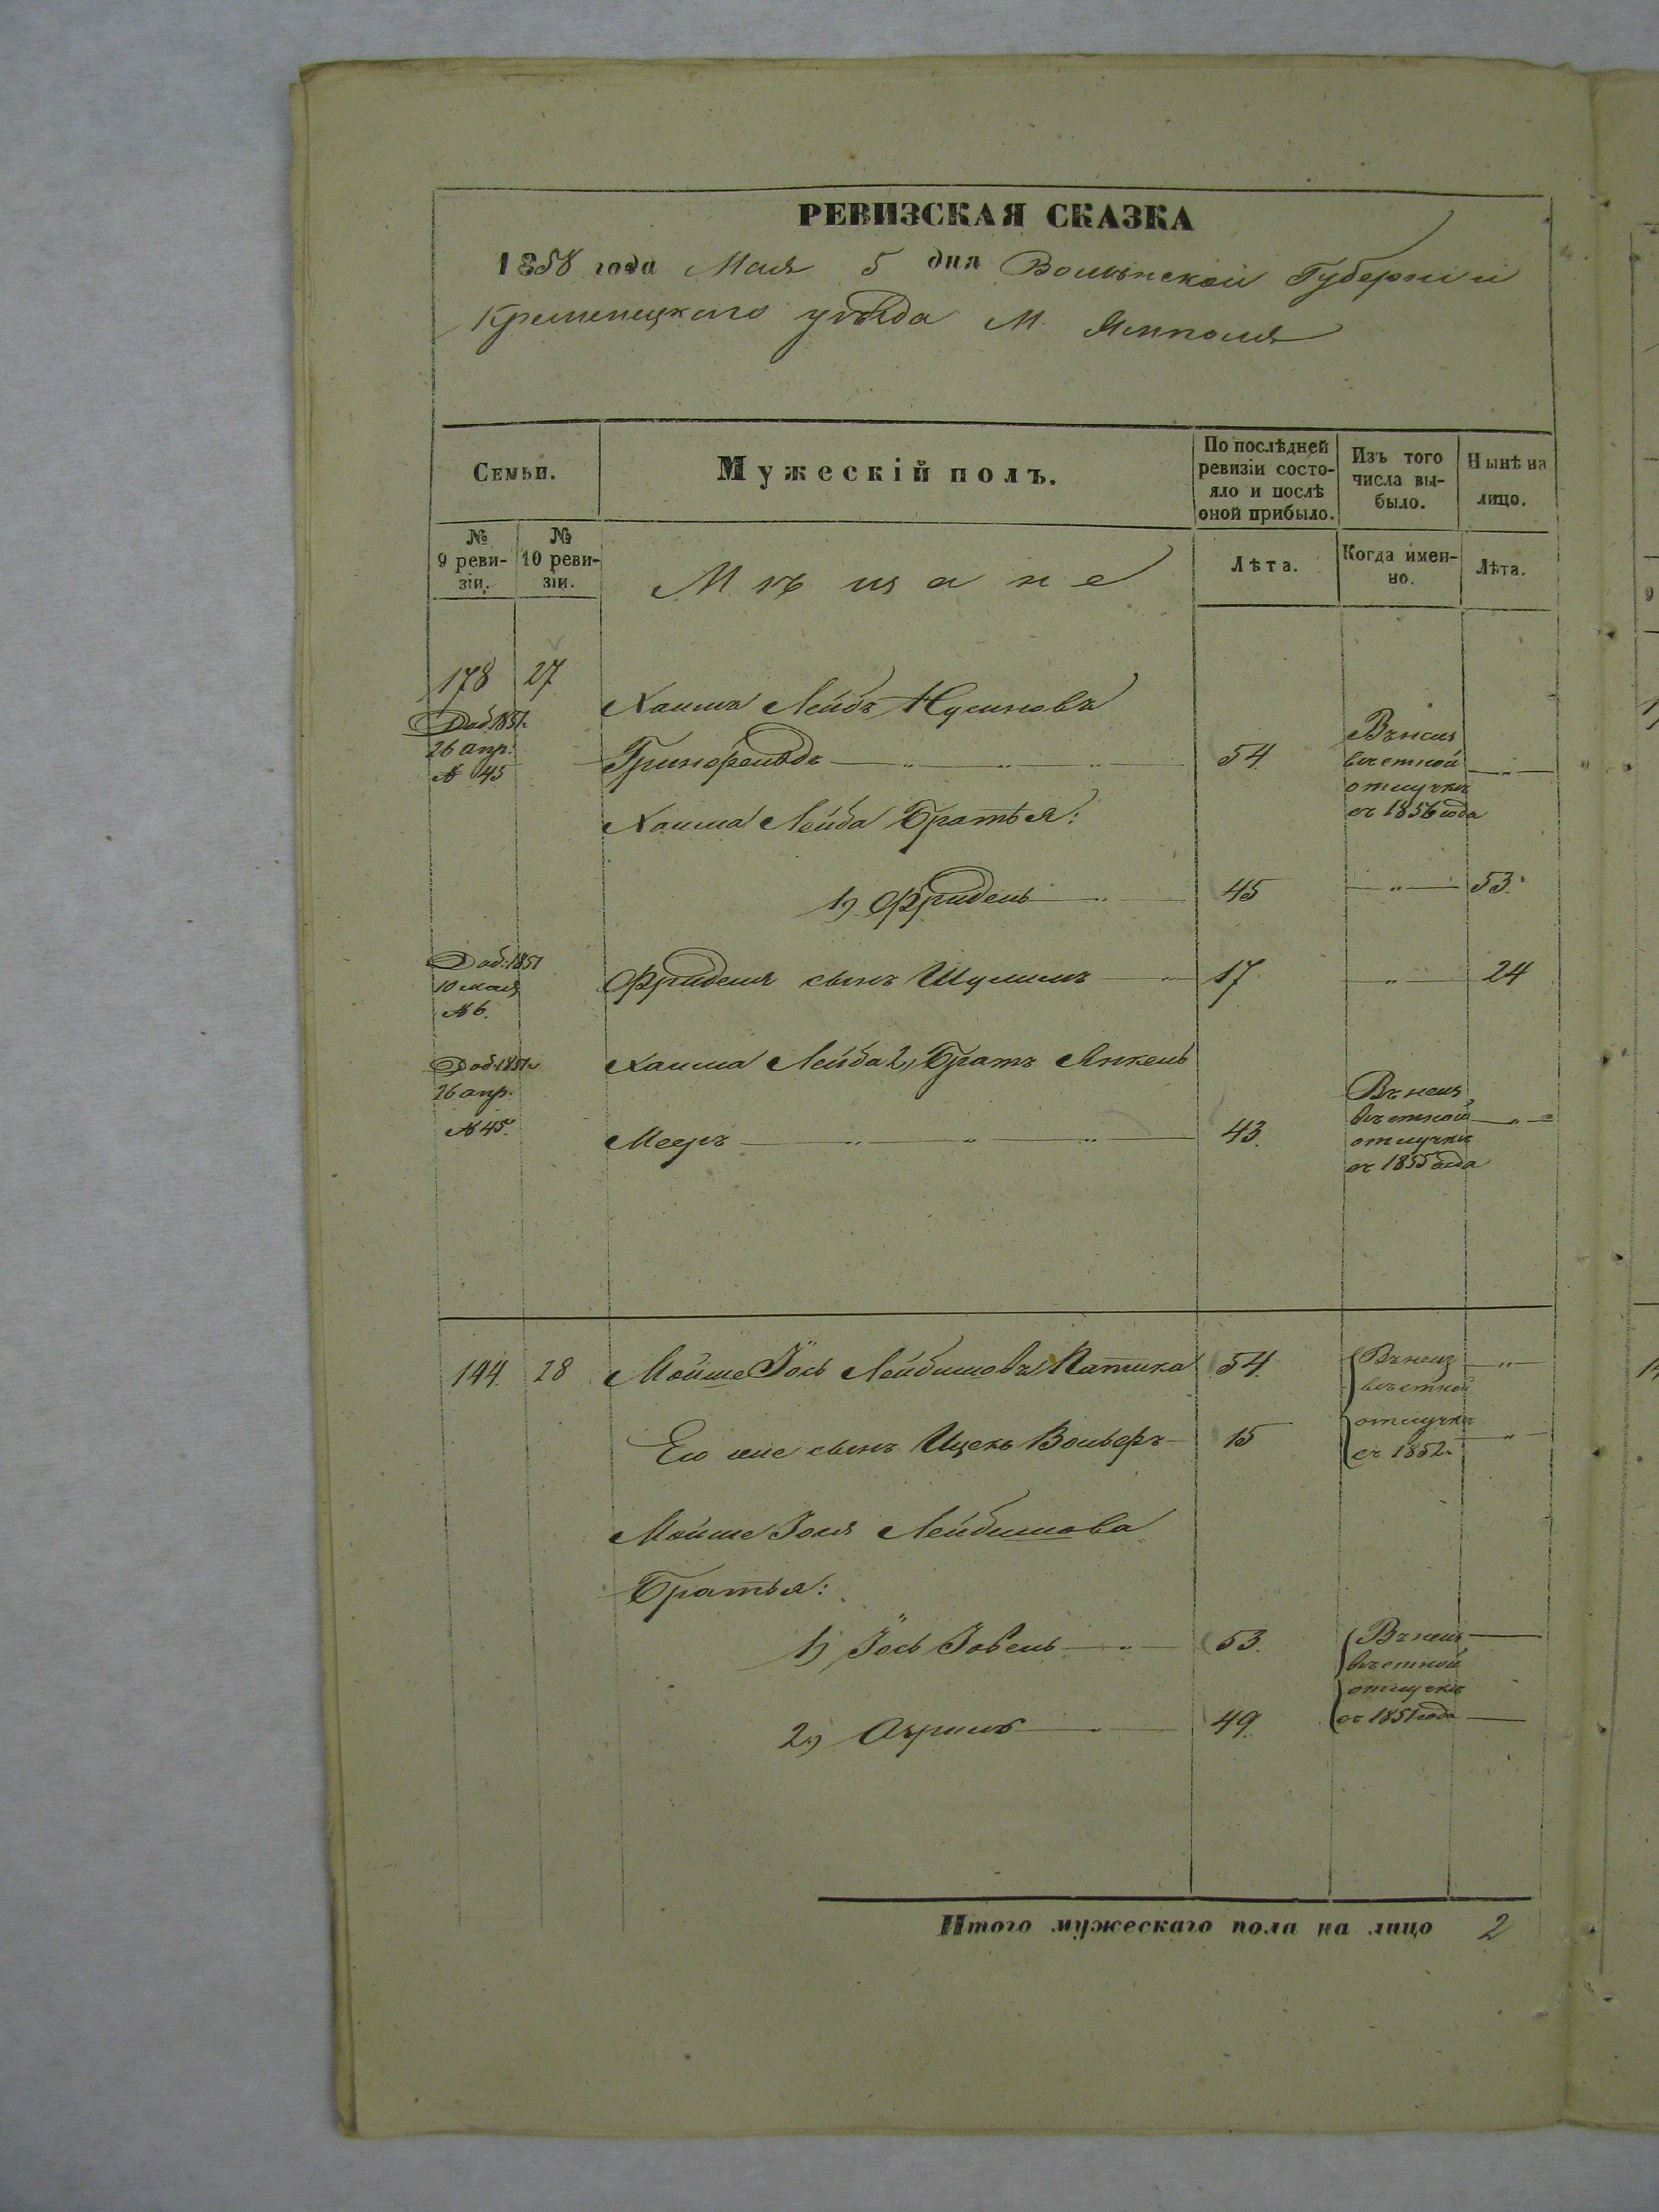 РЕВИЗСКАЯ СКАЗКА
1858 года Мая 5 дня Волынской Губерніи
Кременецкаго уѣзда М. Ямполя
Семьи.
Мужескій полъ.
По послѣдней
ревизіи состо-
яло и послѣ
оной прибыло.
Изъ того
числа вы-
было.
Нынѣ на
лицо.
№
9 реви-
зіи.
№
10 реви-
зіи.
Мѣщане
Лѣта.
Когда имен-
но.
Лѣта.
178 27
Хаимъ Лейбъ Нусиновъ
Доб. 1851
26 апр.
№ 45
Гринфельдъ 54
Въ неиз
вѣстной
отлучкѣ
съ 1856 года
Хаима Лейба Братья:
1) Фридель 45 53.
Доб. 1851
10 мая
№ 6.
Фриделя сынъ Шулимъ 17 24
Доб. 1851
26 апр.
№ 45.
Хаима Лейба 2) Братъ Янкель
Мееръ 43.
Въ неиз
вѣстной
отлучкѣ
съ 1855 года
144. 28 Мойше Іось Лейбишовъ Патика 54.
Въ неиз
вѣстной
Его же сынъ Ицекъ Вольфъ 15
отлучкѣ
съ 1852
Мойше Іося Лейбишова
Братья:
1) Іось 53.
Въ неиз
вѣстной
отлучкѣ
съ 1851 года
2) 49.
Итого мужескаго пола на лицо 2